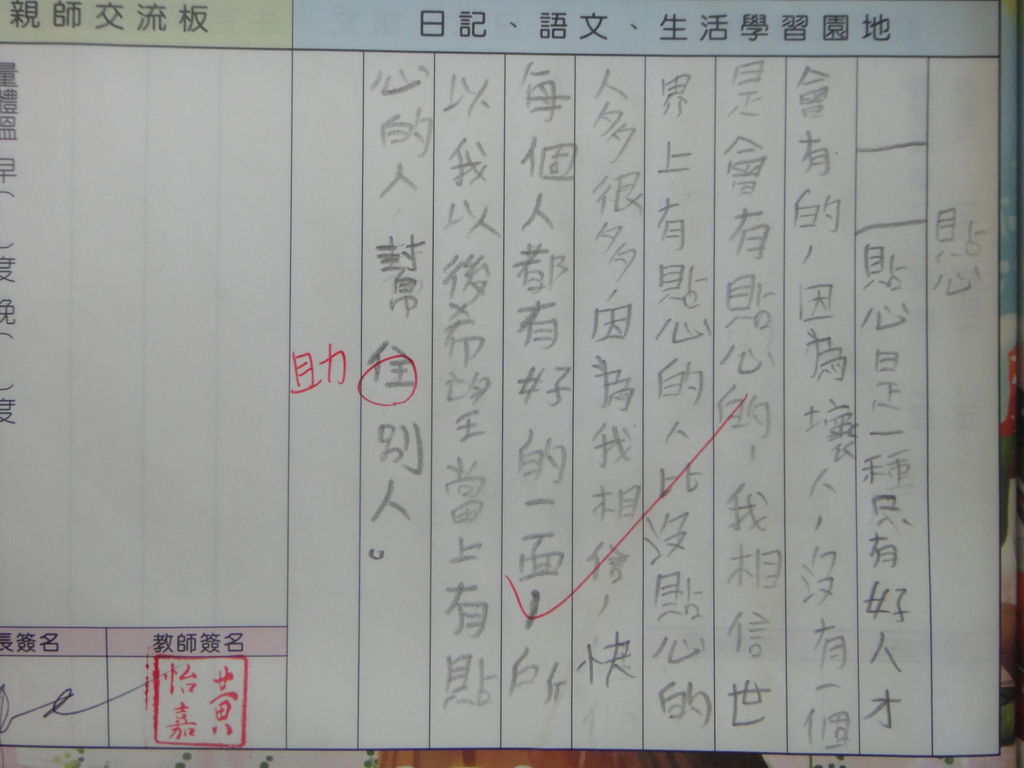 親師交流板
日記、語文、生活學習園地
貼心
貼心是一種只有好人才
會有的,因為壞人,沒有一個
是會有貼心的,我相信世
界上有貼心的人比沒貼心的
人多很多,因為我相信,快
每個人都有好的一面,所
以我以後希望當上有貼
心的人,幫住別人。
助
量體溫 早( )度 晚( )度
長簽名
教師簽名
黃怡嘉